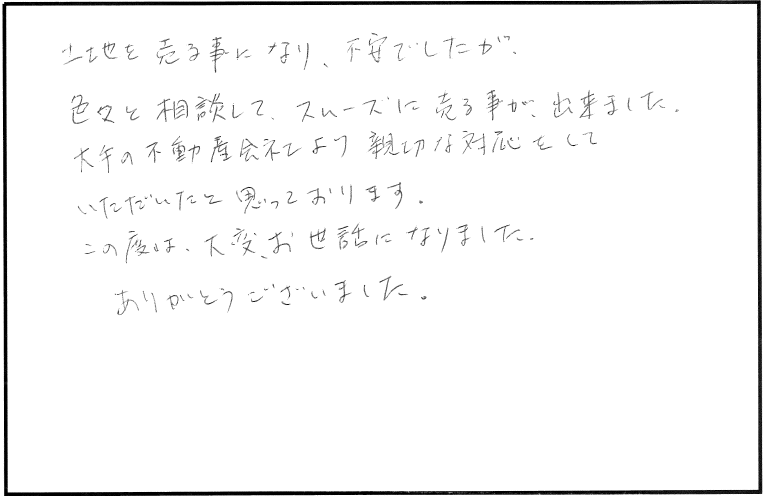 土地を売る事になり、不安でしたが、
色々と相談して、スムーズに売る事が、出来ました。
大手の不動産会社より親切な対応をして
いただいたと思っております。
この度は、大変、お世話になりました。
ありがとうございました。